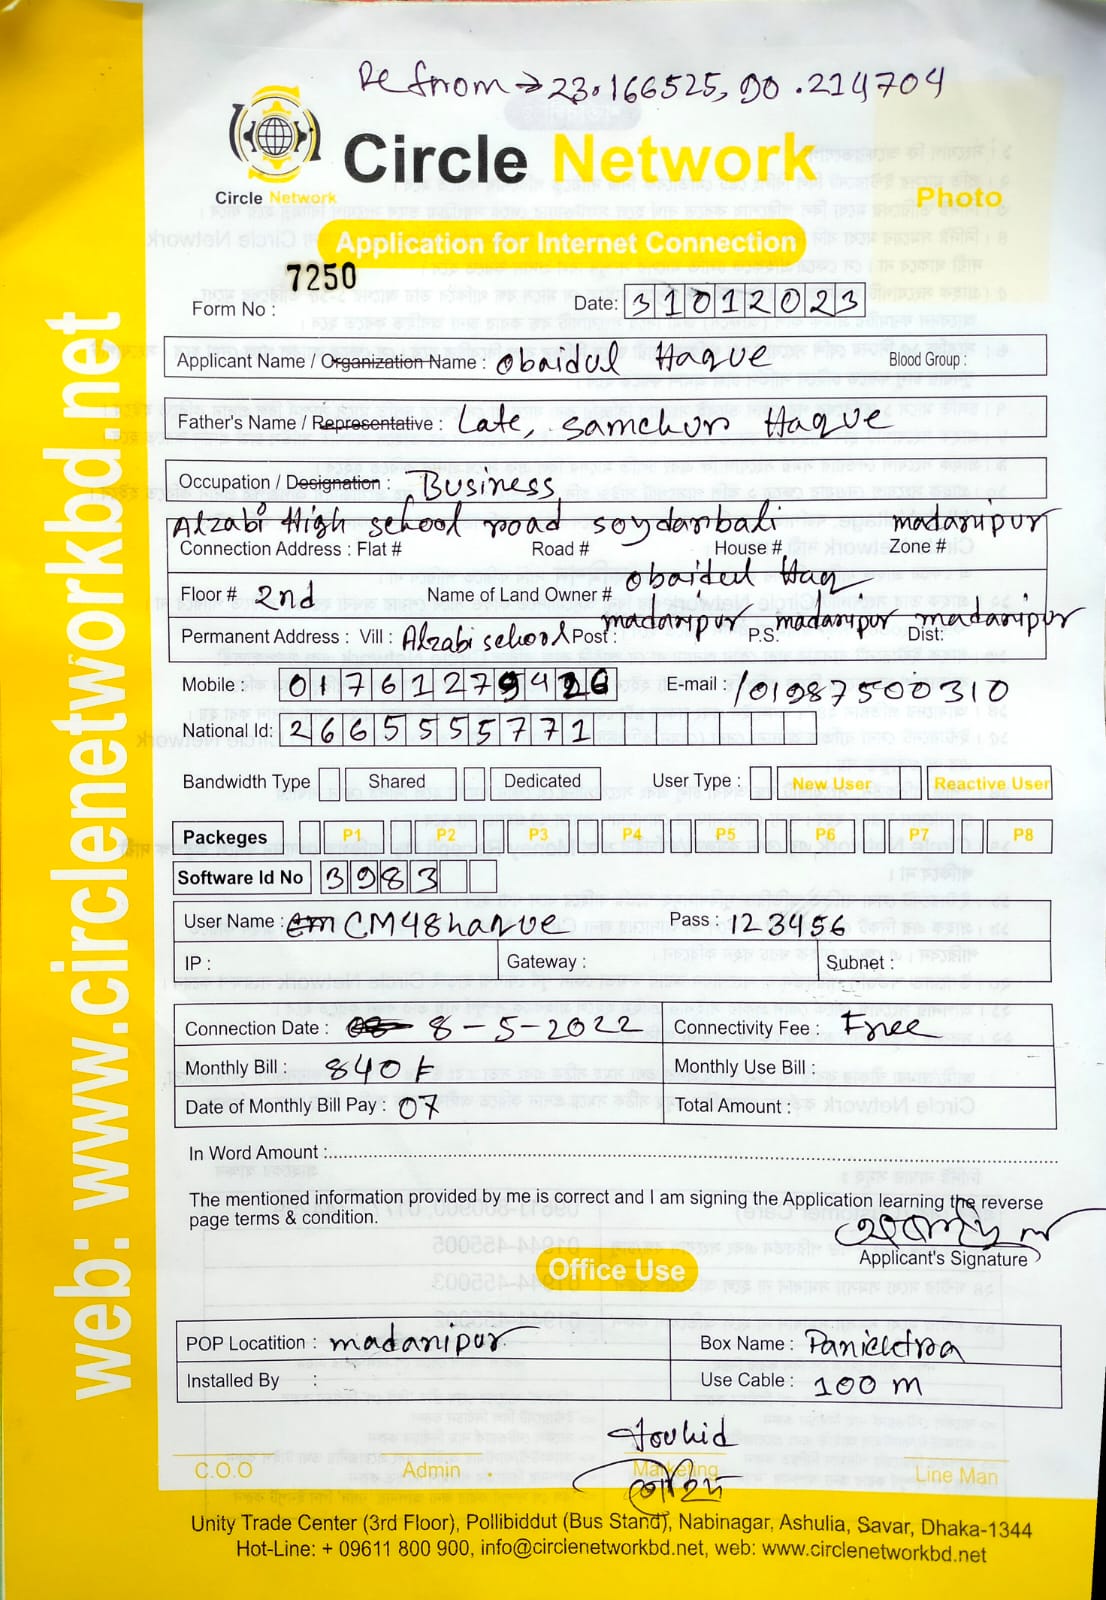 Re from → 23.166525, 90.214704
Circle Network
Circle Network
Photo
Application for Internet Connection
7250
Form No :
Date: 31012023
Applicant Name / Organization Name : Obaidul Haque Blood Group :
Father's Name / Representative : Late, Samchur Haque
Occupation / Designation : Business
Alzabi High school road soydarbali madaripur
Connection Address : Flat # Road # House # Zone #
Floor # 2nd Name of Land Owner # Obaidul Haq
Permanent Address : Vill : Alzabi school Post : madaripur P.S: madaripur Dist: madaripur
Mobile : 01761279426 E-mail : /01987500310
National Id: 2665555771
Bandwidth Type Shared Dedicated User Type : New User Reactive User
Packeges P1 P2 P3 P4 P5 P6 P7 P8
Software Id No 3983
User Name : CM48haque Pass : 123456
IP : Gateway : Subnet :
Connection Date : 8-5-2022 Connectivity Fee : Free
Monthly Bill : 840 Monthly Use Bill :
Date of Monthly Bill Pay : 07 Total Amount :
In Word Amount :
The mentioned information provided by me is correct and I am signing the Application learning the reverse
page terms & condition.
Applicant's Signature
Office Use
POP Locatition : madaripur Box Name :
Installed By : Use Cable : 100 m
Touhid
C.O.O Admin Marketing Line Man
তৌহিদ
Unity Trade Center (3rd Floor), Pollibiddut (Bus Stand), Nabinagar, Ashulia, Savar, Dhaka-1344
Hot-Line: + 09611 800 900, info@circlenetworkbd.net, web: www.circlenetworkbd.net
web: www.circlenetworkbd.net